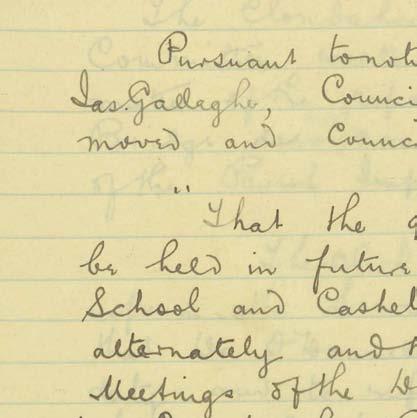 Pursuant to noti
Jas. Gallagher, Counci
moved and Counci
"
That the q
be held in future
School and Cashel
alternately and t
Meetings of the D